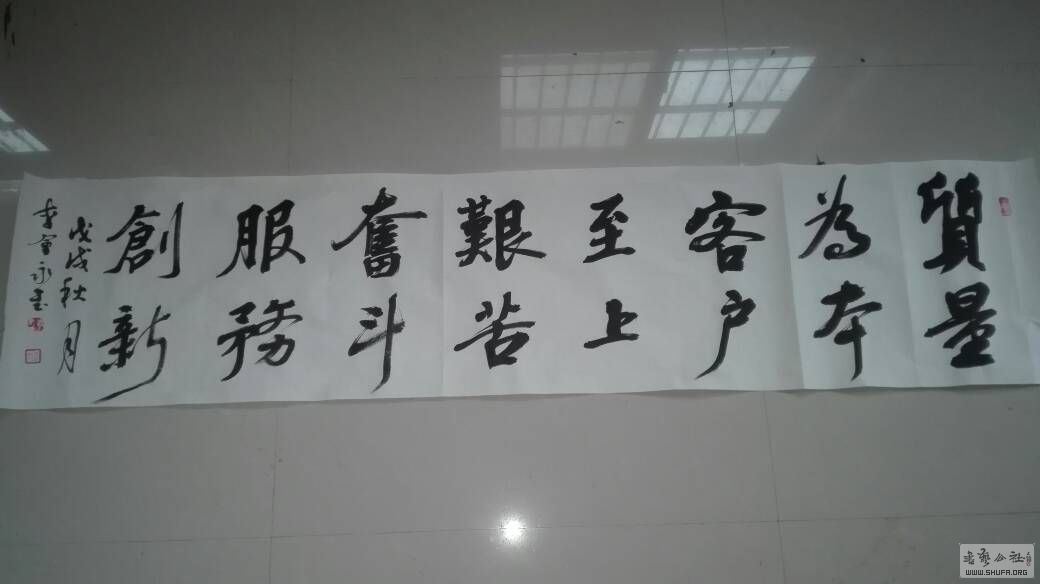 質量
為本
客户
至上
艱苦
奮斗
服務
創新
戊戌秋月
李金永書
书艺公社
WWW.SHUFA.ORG